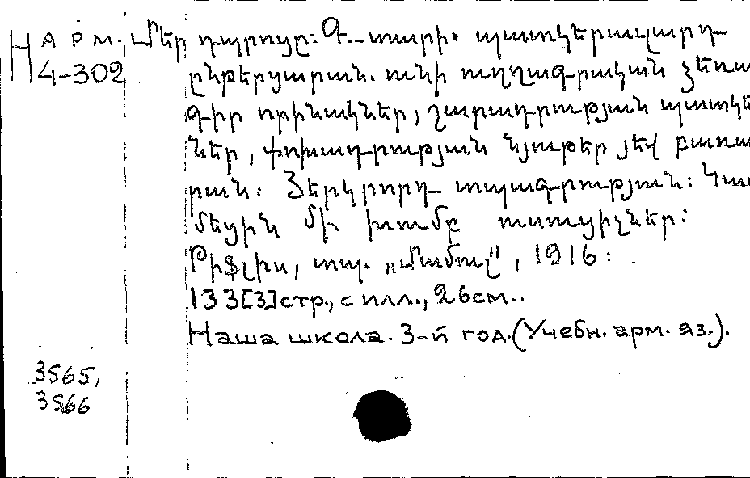 На арм. Մեր դպրոցը: Գ. տարի. պատկերազարդ
4-302 ընթերցարան. ունի ուղղագրական, ձեռա
գիր օրինակներ, շարադրության պատկե
ներ, փոխադրության նյութեր յեվ բառա
րան: Յերկրորդ տպագրություն: Կազ
մեցին մի խումբ ուսուցիչներ:
Թիֆլիս, տպ. „Մամուլ", 1916:
133[3]стр., с илл., 26см..
Наша школа. 3-й год. (Учебн. арм. яз.).
3565,
3566